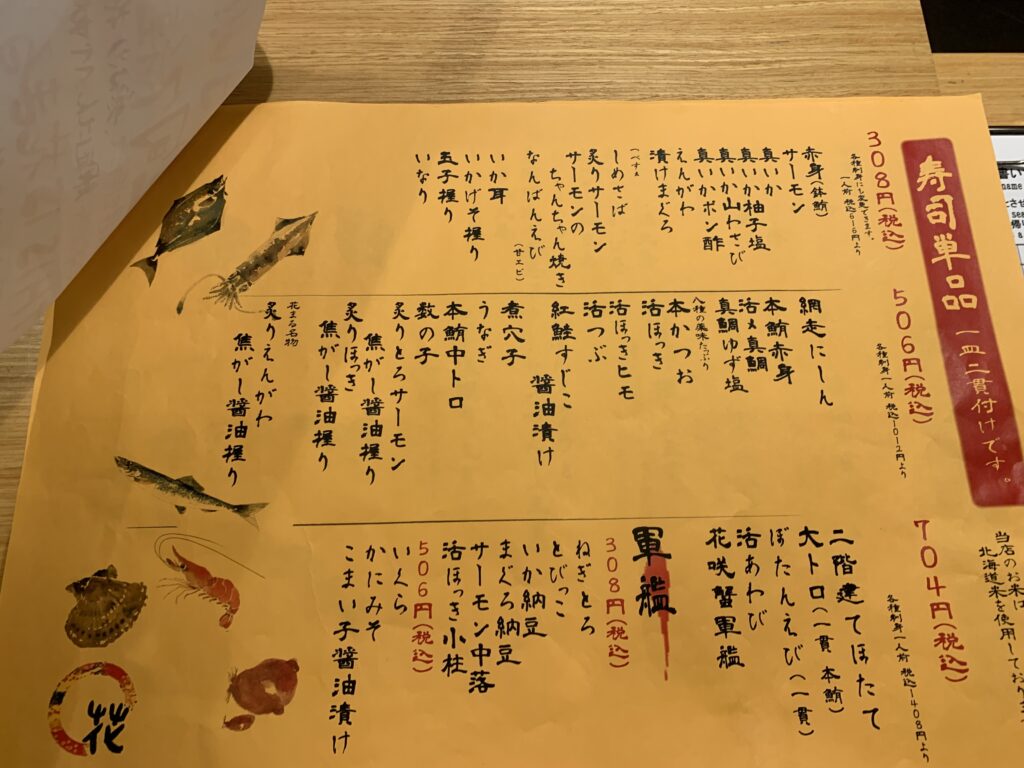 寿司単品 一皿二貫付けです。
308円(税込)
各種刺身にも変更できます。
一人前 税込616円より
赤身(鉢鮪)
サーモン
真いか
真いか柚子塩
真いか山わさび
真いかポン酢
えんがわ
漬けまぐろ
しめさば
炙りサーモン
サーモンの
ちゃんちゃん焼き
なんばんえび
(甘エビ)
いか耳
いかげそ握り
玉子握り
いなり
506円(税込)
各種刺身一人前 税込1012円より
網走にしん
本鮪赤身
活〆真鯛
真鯛ゆず塩
八種の薬味たっぷり
本かつお
活ほっき
活ほっきヒモ
活つぶ
紅鮭すじこ
醤油漬け
煮穴子
うなぎ
本鮪中トロ
数の子
炙りとろサーモン
焦がし醤油握り
炙りほっき
焦がし醤油握り
花まる名物
炙りえんがわ
焦がし醤油握り
当店のお米は
北海道米を使用してお
704円(税込)
各種刺身一人前 税込1408円より
二階建てほたて
大トロ(一貫 本鮪)
ぼたんえび(一貫)
活あわび
花咲蟹軍艦
軍艦
308円(税込)
ねぎとろ
とびっこ
いか納豆
まぐろ納豆
サーモン中落
活ほっき小柱
506円(税込)
いくら
かにみそ
こまい子醤油漬け
花